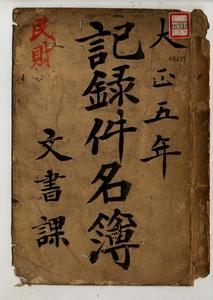 大正五年
記録件名簿
文書課
民財